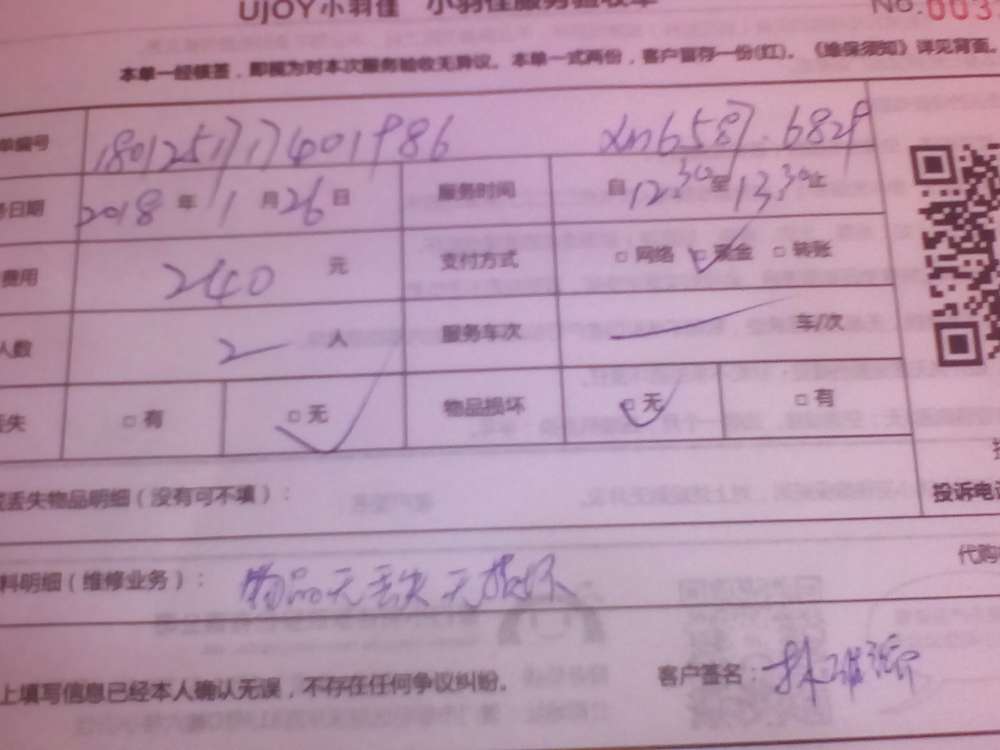 UJOY小羽佳 小羽佳服务验收单
No.003
本单一经核签，即视为对本次服务验收无异议。本单一式两份，客户留存一份(红)。《维保须知》详见背面。
单编号 180125171740 1986
务日期 2018年1月26日 服务时间 自12 30至13 30止
费用 240元 支付方式 □网络 □现金 □转账
人数 2人 服务车次 一 车/次
丢失 □有 □无 物品损坏 □无 □有
或丢失物品明细（没有可不填）：
投诉电
料明细（维修业务）： 物品无丢失无损坏
代购
上填写信息已经本人确认无误，不存在任何争议纠纷。 客户签名：